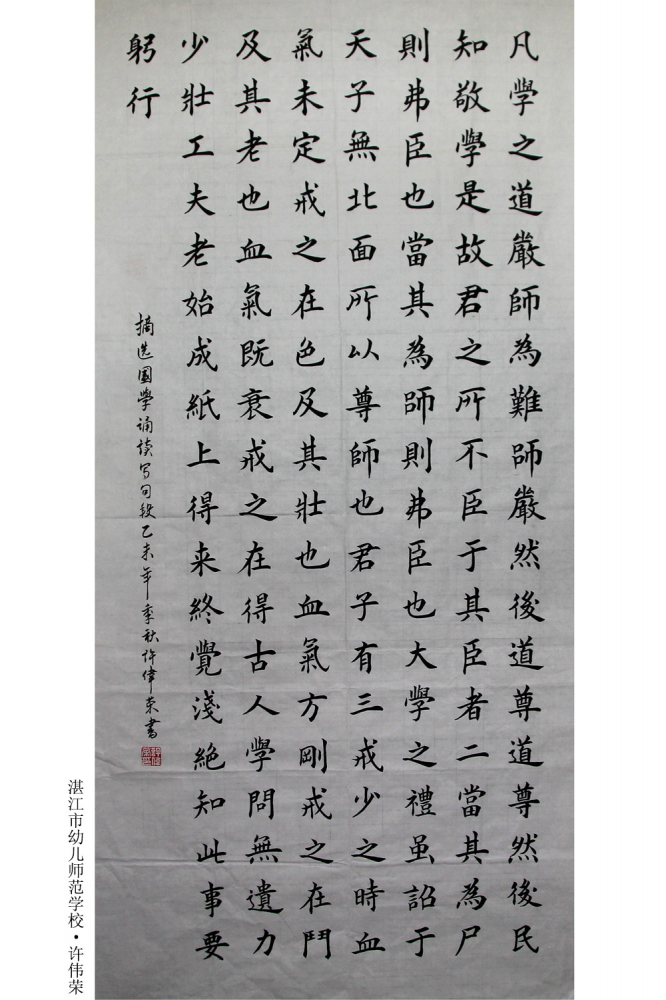 凡學之道嚴師為難師嚴然後道尊道尊然後民
知敬學是故君之所不臣于其臣者二當其為尸
則弗臣也當其為師則弗臣也大學之禮虽詔于
天子無北面所以尊師也君子有三戒少之時血
氣未定戒之在色及其壯也血氣方剛戒之在鬥
及其老也血氣既衰戒之在得古人學問無遺力
少壯工夫老始成紙上得来終覺淺絶知此事要
躬行
摘选國學诵读写句段乙未年季秋许偉荣書
湛江市幼儿师范学校·许伟荣